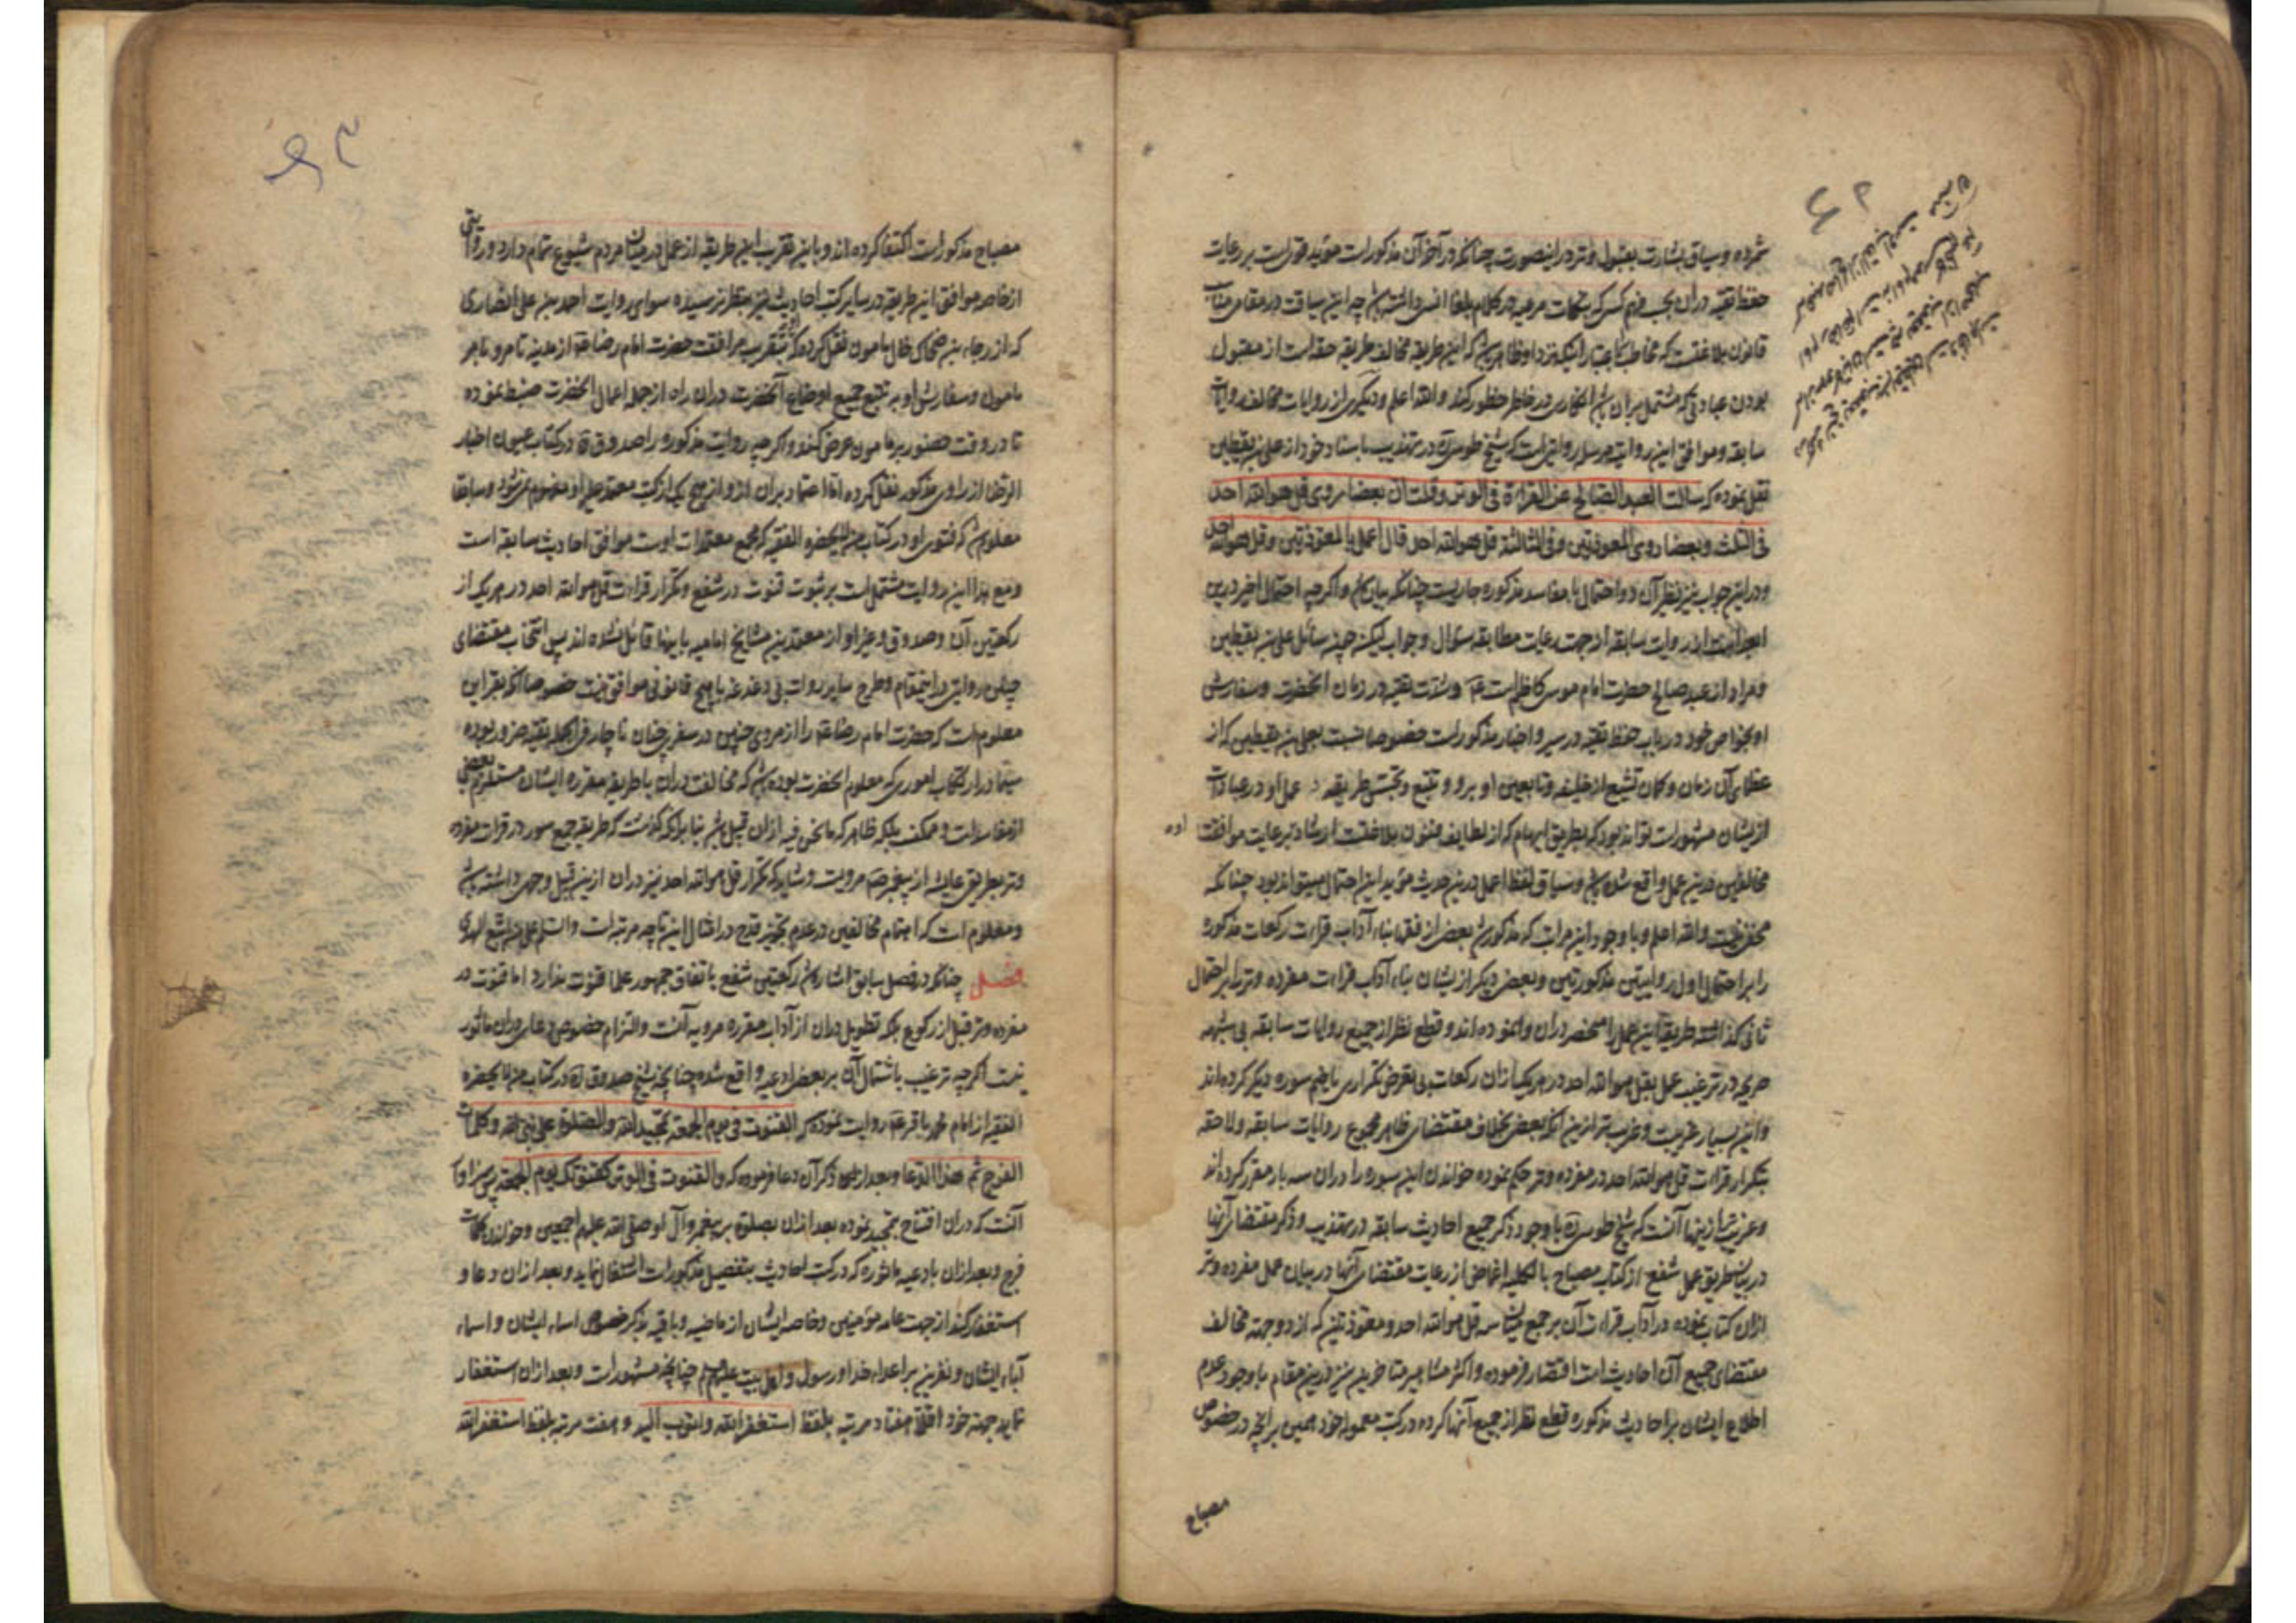 شمرده و سیاق بشارت بقبول وتر در اینصورت چنانکه در آخر آن مذکورست مؤید قویست بر رعایت
حفظ تقیه در آن بحسب فهم کسی که بنکات مرعیه در کلام بلغا انس داشته باشد چه این سیاقت در مقامی مناسب
قانون بلاغتست که مخاطب باعتبار اینکه نزد او ظاهر باشد که این طریقه مخالف طریقه حقه است از مقبول
بودن عبادتی که مشتمل بر آن باشد انکاری در خاطر خطور کند والله اعلم و دیگری از روایات مخالفه روایات
سابقه و موافق این روایة مرسله روایتی است که شیخ طوسی ره در تهذیب باسناد خود از علی بن یقطین
نقل نموده که سالت العبد الصالح عن القراءة فی الوتر وقلت ان بعضا روی قل هو الله احد
فی الثلث وبعضا روی المعوذتین وفی الثالثة قل هو الله احد قال اعمل بالمعوذتین وقل هو الله احد
و در این جواب نیز نظیر آن دو احتمال با مفاسد مذکوره جاریست چنانکه بیان شد و اگرچه احتمال اخیر درین
از روایت سابقه از جهت رعایت مطابقه سؤال و جواب لیکن چون سائل علی بن یقطین
و مراد از عبد صالح حضرت امام موسی کاظم است عم و شدت تقیه در زمان آنحضرت و سفارش
او بخواص خود در باب حفظ تقیه در سیر و اخبار مذکورست خصوصا نسبت بعلی بن یقطین که از
عظمای آن زمان و گمان تشیع از خلیفه و تابعین او بر او و تتبع و تجسس طریقه عمل او در عبادات
از ایشان مشهورست تواند بود که بطریق ایهام که از لطایف فنون بلاغتست ارشاد برعایت موافقت
مخالفین درین عمل واقع شده باشد و سیاق لفظ اعمل درین حدیث مؤید این احتمال میتواند بود چنانکه
مخفی نیست والله اعلم و با وجود این مراتب که مذکور شد بعضی از فقها بناء آداب قراءت رکعات مذکوره
را بر احتمال اول روایتین مذکورتین و بعضی دیگر از ایشان بناء آداب قراءت مفرده وتر را بر احتمال
ثانی گذاشته طریقه این عمل را منحصر در آن وانموده اند و قطع نظر از جمیع روایات سابقه بی شبهه
صریحه در ترغیب عمل بقل هو الله احد در هر یک از آن رکعات بی تعرض تکراری یا ضم سوره دیگر کرده اند
و این بسیار غریبست و غریبتر ازین آنکه بعضی بخلاف مقتضای ظاهر مجموع روایات سابقه و لاحقه
بتکرار قراءت قل هو الله احد در مفرده وتر حکم نموده خواندن این سوره را در آن سه بار مقرر کرده اند
و غریبتر از اینها آنست که شیخ طوسی ره با وجود ذکر جمیع احادیث سابقه در تهذیب و ذکر مقتضای آنها
در بیان طریق عمل شفع از کتاب مصباح بالکلیه اغماض از رعایت مقتضای آنها در بیان عمل مفرده وتر
ازان کتاب نموده در آداب قراءت آن بر جمع میان سه قل هو الله احد و معوذتین که از دو جهة مخالف
مقتضای جمیع آن احادیث است اقتصار فرموده و اکثر مشاهیر متاخرین نیز درین مقام با وجود عدم
اطلاع ایشان بر احادیث مذکوره قطع نظر از جمیع آنها کرده در کتب معموله خود همین بر آنچه در خصوص
مصباح
مصباح مذکورست اکتفا کرده اند و باین تقریب این طریقه از عمل در میان مردم شیوع تمام دارد و روایتی
از خاصه موافق این طریقه در سایر کتب احادیث نیز بنظر نرسیده سوای روایت احمد بن علی انصاری
که از رجاء بن ضحاک خال مامون نقل کرده که بتقریب مرافقت حضرت امام رضا عم از مدینه تا مرو بامر
مامون و سفارش او بر تتبع جمیع اوضاع آنحضرت در آن راه از جمله اعمال آنحضرت ضبط نموده
تا در وقت حضور بر مامون عرض کند و اگرچه روایت مذکوره را صدوق ره در کتاب عیون اخبار
الرضا از راوی مذکور نقل کرده اما اعتماد بر آن از و از هیچ یک از کتب معتمد علیه او مفهوم نمی شود و سابقا
معلوم شد که فتوی او در کتاب من لا یحضره الفقیه که مجمع معتمدات اوست موافق احادیث سابقه است
و مع هذا این روایت مشتمل است بر ثبوت قنوت در شفع و تکرار قراءت قل هو الله احد در هر یک از
رکعتین آن و صدوق و غیر او از معتمدین مشایخ امامیه باینها قائل نشده اند پس انتخاب مقتضای
چنان روایتی در این مقام و طرح سایر روات بی دغدغه با هیچ قانونی موافق نیست خصوصا آنکه بقراین
معلومست که حضرت امام رضا عم را از مروی چنین در سفری چنان ناچار فی الجمله تقیه ضرور بوده
سیما در ارتکاب اموری که معلوم آنحضرت بوده باشد که مخالفت در آن با طریقه مقرره ایشان مستلزم بعضی
از مفاسدات و ممکنست بلکه ظاهر که ما نحن فیه از آن قبیل باشد بنا بر آنکه گذشت که طریقه جمع سور در قراءت مفرده
وتر بطریق عایشه از پیغمبر صم مرویست و شاید که تکرار قل هو الله احد نیز در آن ازین قبیل وجهی داشته باشد
و معلوم است که اهتمام مخالفین در عدم تجویز قدح در امثال این تا چه مرتبه است والسلام علی من اتبع الهدی
فصل چنانکه در فصل سابق اشاره شد رکعتین شفع باتفاق جمهور علما قنوت ندارد اما قنوت در
مفرده وتر قبل از رکوع بلکه تطویل در آن از آداب مقرره مرویه آنست و التزام خصوص دعای در آن ماثور
نیست اگرچه ترغیب باشتمال آن بر بعض ادعیه واقع شده چنانچه شیخ صدوق ره در کتاب من لا یحضره
الفقیه از امام محمد باقر عم روایت نموده که القنوت فی یوم الجمعة تمجید الله والصلوة علی نبی الله وکلمات
الفرج ثم هذا الدعا و بعد از ذکر آن دعا فرموده که والقنوت فی الوتر کقنوتک یوم الجمعة پس سزاوار
آنست که در آن افتتاح بتمجید نموده بعد ازان بصلوة بر پیغمبر وآل او صلی الله علیهم اجمعین و خواندن کلمات
فرج و بعد ازان بادعیه ماثوره که در کتب احادیث بتفصیل مذکورست اشتغال نماید و بعد ازان دعا و
استغفار کند از جهت عامه مؤمنین و خاصه ایشان از ماضیه و باقیه بذکر خصوص اسماء ایشان و اسماء
آباء ایشان و نفرین بر اعداء خدا و رسول و اهل بیت علیهم چنانچه مشهورست و بعد ازان استغفار
نماید جهة خود اقلا هفتاد مرتبه بلفظ استغفر الله واتوب الیه و هفت مرتبه بلفظ استغفر الله